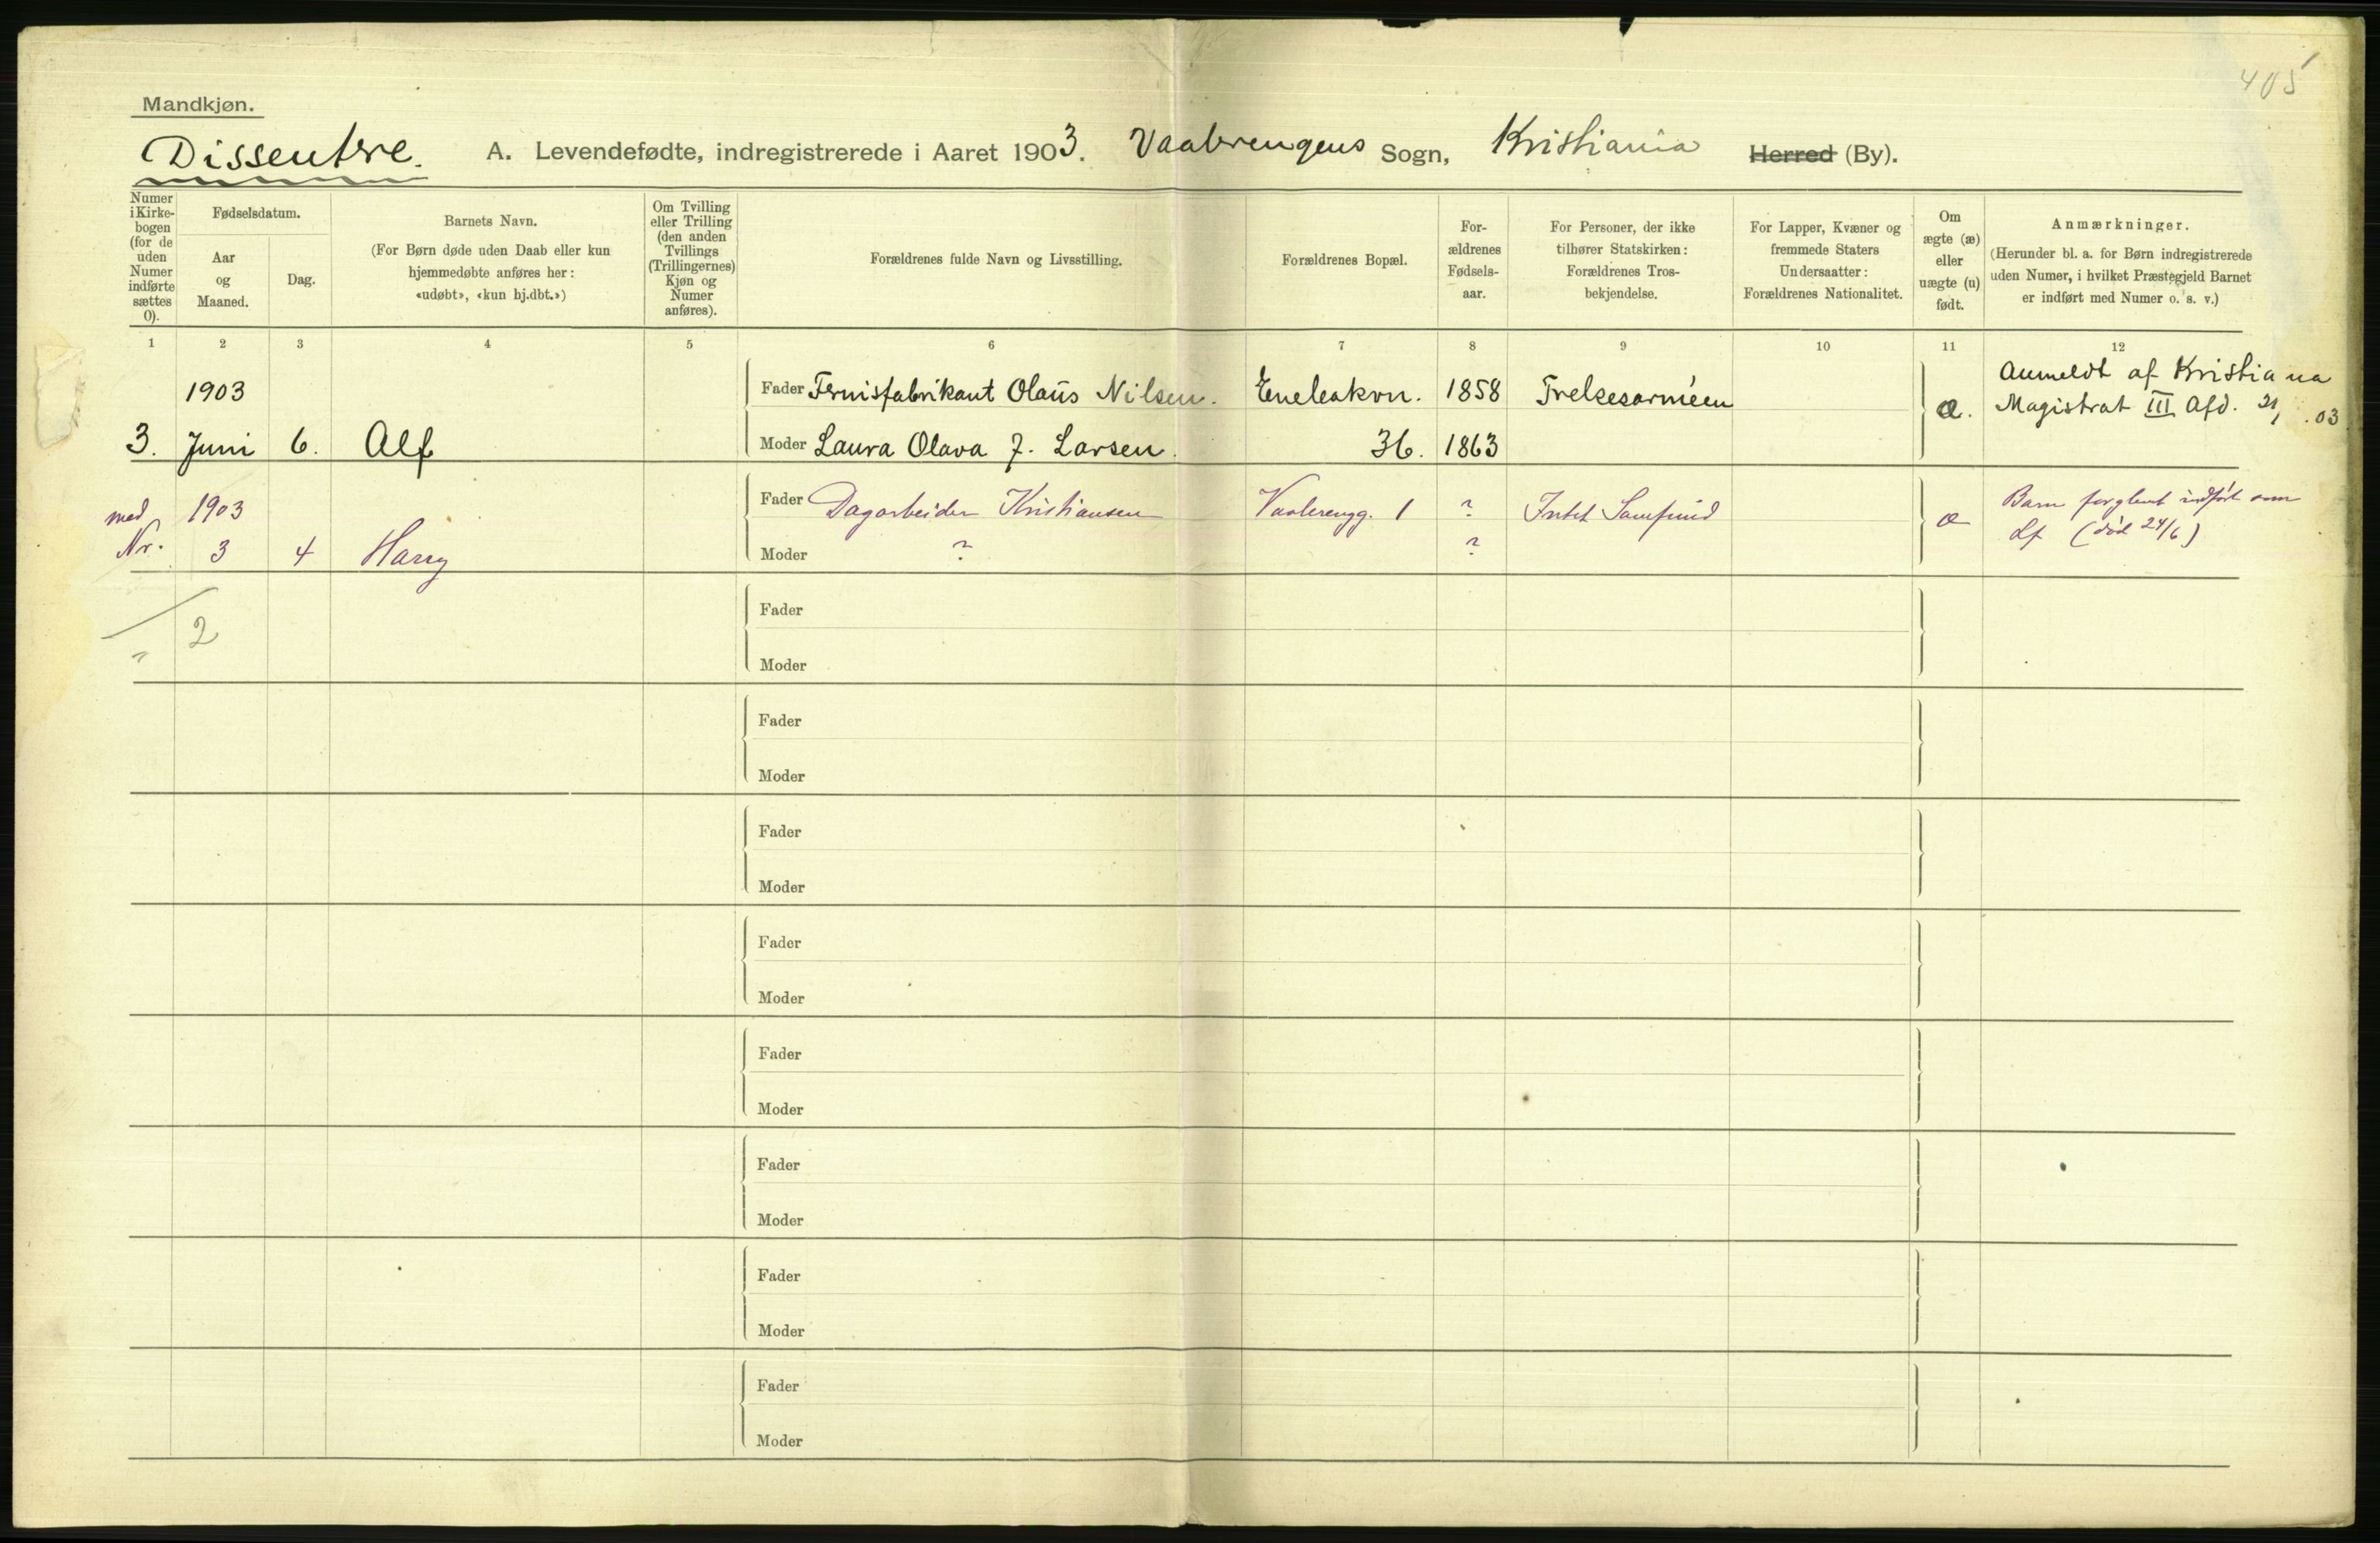 405
Mandkjøn.
Dissentere. A. Levendefødte, indregistrerede i Aaret 1903. Vaalerengens Sogn, Kristiania Herred (By).
Numer i Kirkebogen (for de uden Numer indførte sættes 0).
Fødselsdatum.
Aar og Maaned.
Dag.
Barnets Navn.
(For Børn døde uden Daab eller kun hjemmedøbte anføres her: «udøbt», «kun hj.dbt.»)
Om Tvilling eller Trilling (den anden Tvillings (Trillingernes) Kjøn og Numer anføres).
Forældrenes fulde Navn og Livsstilling.
Forældrenes Bopæl.
Forældrenes Fødselsaar.
For Personer, der ikke tilhører Statskirken: Forældrenes Trosbekjendelse.
For Lapper, Kvæner og fremmede Staters Undersaatter: Forældrenes Nationalitet.
Om ægte (æ) eller uægte (u) født.
Anmærkninger.
(Herunder bl. a. for Børn indregistrerede uden Numer, i hvilket Præstegjeld Barnet er indført med Numer o. s. v.)
1 2 3 4 5 6 7 8 9 10 11 12
1903 Fader Fernisfabrikant Olaus Nilsen. Enebakvn. 1858 Frelsesarméen æ. Anmeldt af Kristiania
Magistrat III Afd. 21/ .03
3. Juni 6. Alf Moder Laura Olava J. Larsen. 36. 1863
med 1903 Fader Dagarbeider Kristiansen Vaalerengg. 1 ? Intet Samfund æ Barn forglemt indført som
Nr. 3 4 Harry Moder ? ? Lf (død 24/6)
2
Fader
Moder
Fader
Moder
Fader
Moder
Fader
Moder
Fader
Moder
Fader
Moder
Fader
Moder
Fader
Moder